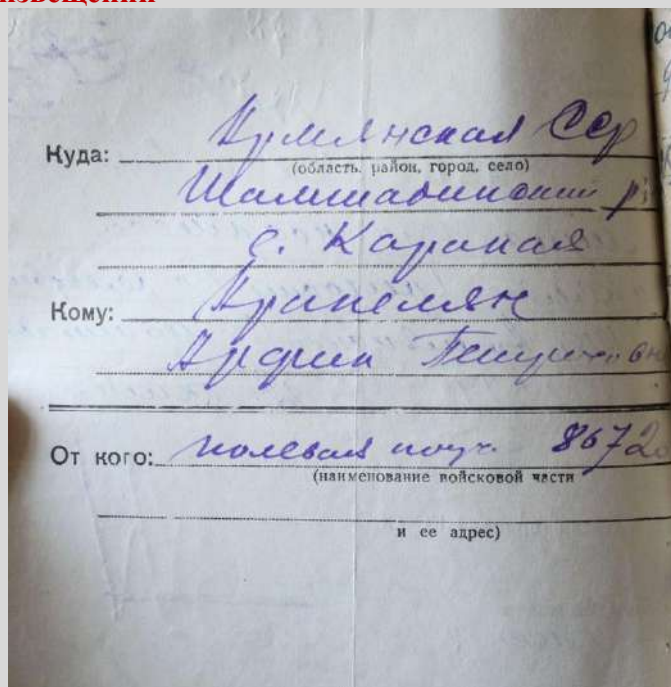 Куда: Армянская ССР
(область, район, город, село)
Шамшадинский р
с. Каракая
Кому: Аракелян
От кого: полевая поч. 8672
(наименование войсковой части
и ее адрес)